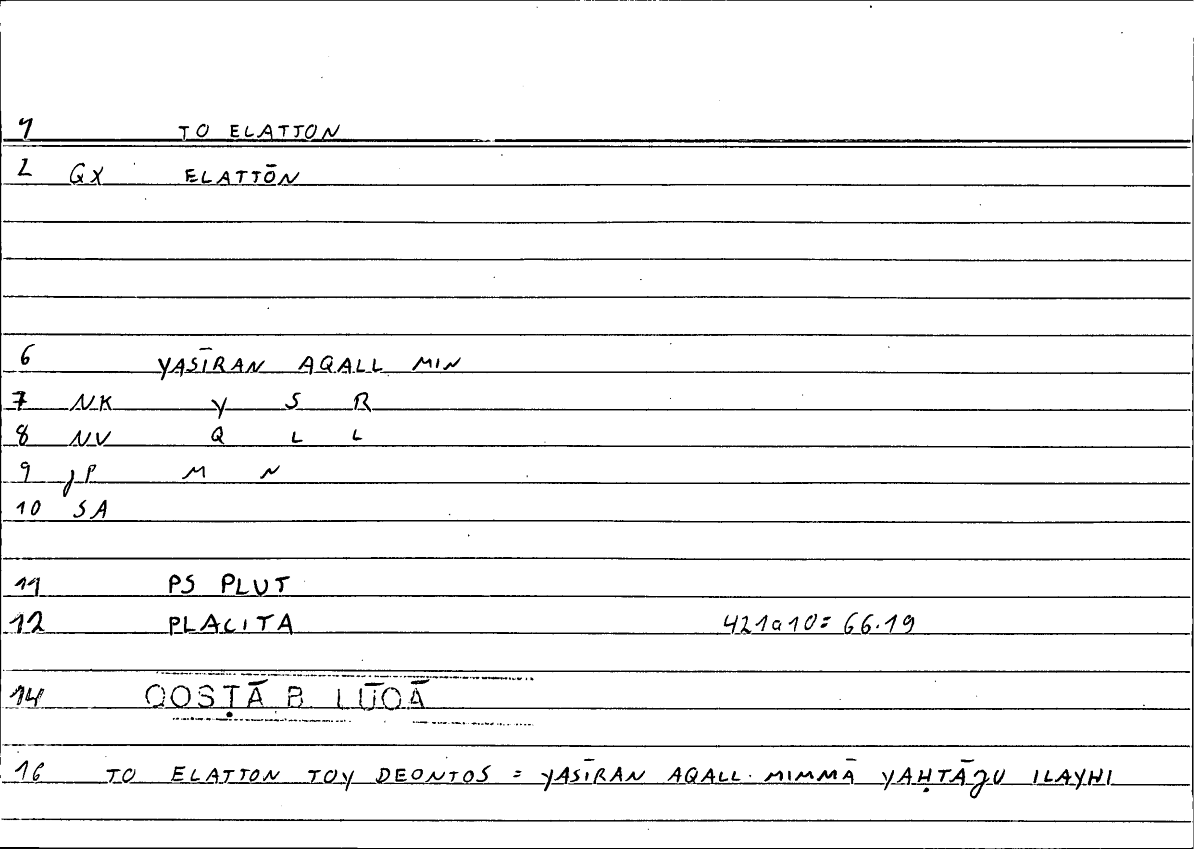 1 TO ELATTON
2 GX ELATTŌN
6 YASĪRAN AQALL MIN
7 NK Y S R
8 NV Q L L
9 JP M N
10 SA
11 PS PLUT
12 PLACITA 421a10= 66.19
14 QOSṬĀ B. LŪQĀ
16 TO ELATTON TOY DEONTOS = YASĪRAN AQALL MIMMĀ YAḤTĀJU ILAYHI